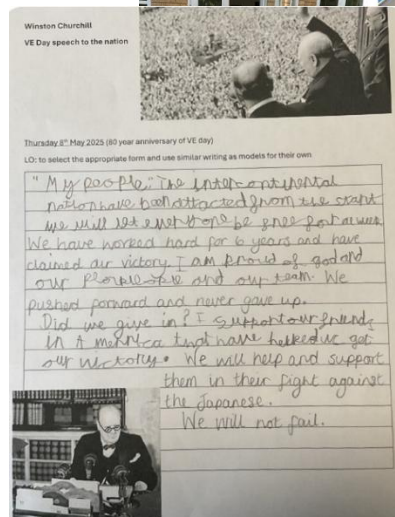 Winston Churchill
VE Day speech to the nation
Thursday 8th May 2025 (80 year anniversary of VE day)
LO: to select the appropriate form and use similar writing as models for their own
"My people," The intercontinental
nation have been attacted from the start
we will let everyone be free for a week
We have worked hard for 6 years and have
claimed our victory. I am proud of god and
our and our team. We
pushed forward and never gave up.
Did we give in? I support our friends
in A merrica that have helked us get
our victory. We will help and support
them in their fight against
the Japanese.
We will not fail.